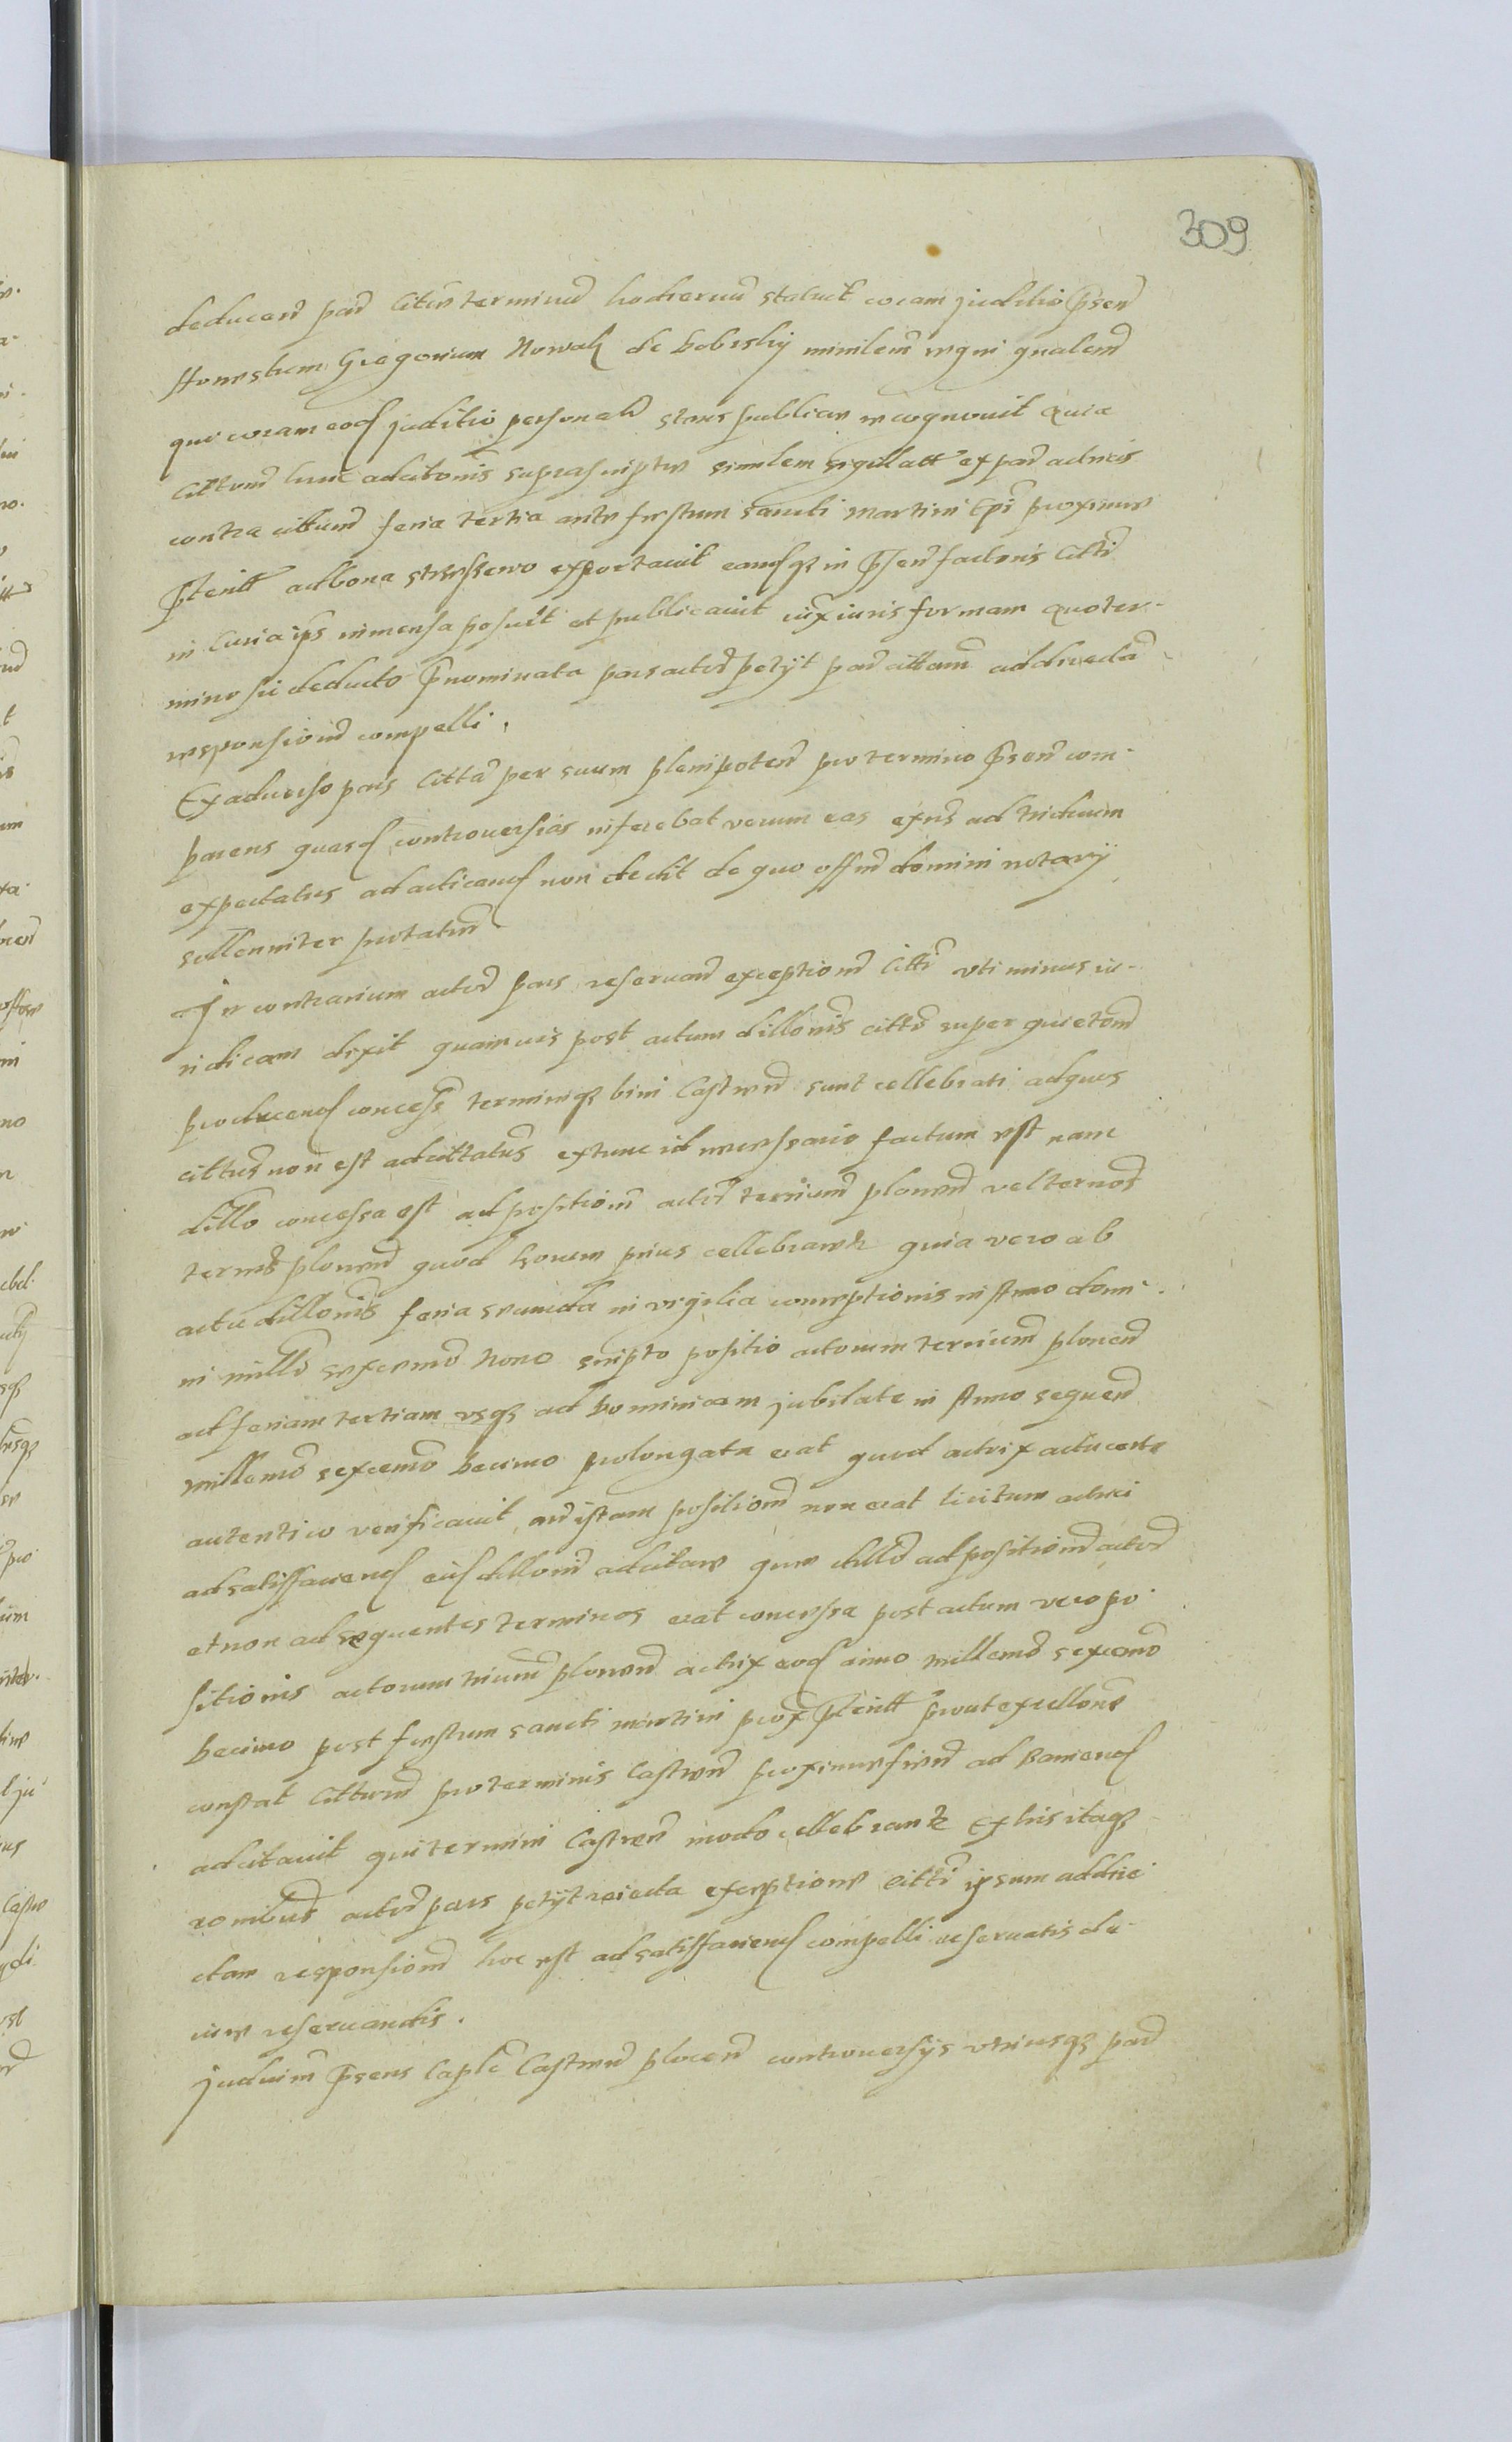 309
deducen par citus terminum hodiernum statuit coram juditio psen
Honestum Gregorium Nowak de Bobrsky minilem regni gnalem
qui coram eod juditio personalr stans publice recognouit Quia
littem hunc adcitonis suprascriptus similem sigillatt ex par actricis
contra cittum feria tertia ante festum sancti Martini Epi proxime
pterit ad bona exportauit eamq in psen
in Curia ips in mensa posuit et publicauit iux iuris formam Quo ter-
mino sic deducto pnominata pars actor petyt par cittam ad directa
responsionem compelli.
Ex aduerso pars citta per suum plenipoten pro termino psen com-
parens quasd controuersias inferebat verum eas ad triduum
expectatus ad acticand non dedit de quo offm domini notary
sollenniter protatum
In contrarium actor pars reseruan exceptionem citti vti minus iu-
ridicam dixit quamuis post actum dillonis citto super quietom
producend concess terminiq bini Castren sunt cellebrati ad quos
cittus non est adcittatus extunc id necessario factum est nam
dillo concessa est ad positiom actor plonen vel ternos
termos plonen quod horum prius cellebrantr quia vero ab
actu dillonis feria secunda in vigilia conceptionis in Anno domi-
ni millo sexcenmo Nono scripto positio actorum plonen
ad feriam tertiam vsq ad Dominicam jubilate in Anno sequen
millemo sexcenmo Decimo prolongata erat quod actrix actu certo
autentico verificauit, ad istam positionem non erat licitum actrici
ad satisfaciend eid dillonem adcitare que dillo ad positionem actor
et non ad sequentes terminos erat concessa post actum vero po-
sitionis actorum plonen actrix eod anno millemo sexcenmo
Decimo post festum sancti Martini prox pterit prout ex rellone
constat cittum pro terminis Castren proxime fien ad
adcitauit qui termini Castren modo cellebrantr Ex his itaq
ronibus actor pars petyt reiecta exceptione citti ipsum ad dire-
ctam responsionem hoc est ad satisfaciend compelli reseruatis de
iure reseruandis.
Judicim psens Caple Castren plocen controuersys vtriusq par